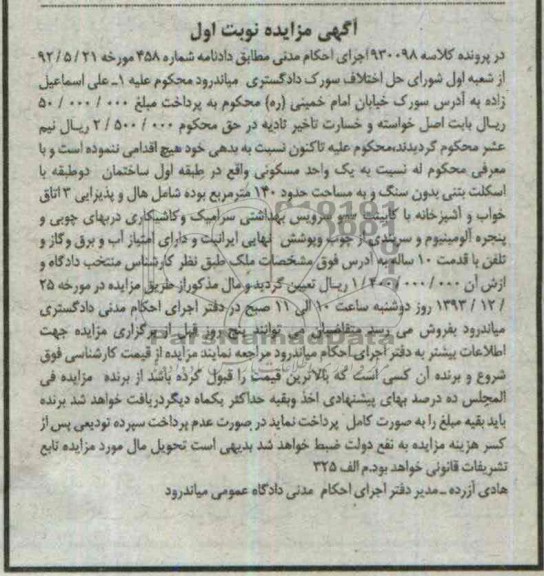 آگهی مزایده نوبت اول
در پرونده کلاسه ۹۳۰۰۹۸ اجرای احکام مدنی مطابق دادنامه شماره ۴۵۸ مورخه ۹۲/۵/۲۱
از شعبه اول شورای حل اختلاف سورک دادگستری میاندرود محکوم علیه ۱ـ علی اسماعیل
زاده به آدرس سورک خیابان امام خمینی (ره) محکوم به پرداخت مبلغ ۵۰/۰۰۰/۰۰۰
ریـال بابت اصل خواسته و خسارت تاخیر تادیه در حق محکوم ۲/۵۰۰/۰۰۰ ریـال نیم
عشر محکوم گردیدند،محکوم علیه تاکنون نسبت به بدهی خود هیچ اقدامی ننموده است و با
معرفی محکوم له نسبت به یک واحد مسکونی واقع در طبقه اول ساختمان دوطبقه با
اسکلت بتنی بدون سنگ و به مساحت حدود ۱۴۰ مترمربع بوده شامل هال و پذیرایی ۳ اتاق
خواب و آشپزخانه با کابینت سرویس بهداشتی سرامیک وکاشیکاری دربهای چوبی و
پنجره آلومینیوم و سربندی از چوب وپوشش نهایی ایرانیت و دارای امتیاز آب و برق وگاز و
تلفن با قدمت ۱۰ ساله به آدرس فوق مشخصات ملک طبق نظر کارشناس منتخب دادگاه و
ارزش آن ۱/۴۰۰/۰۰۰/۰۰۰ ریـال تعیین گردید و مال مذکور از طریق مزایده در مورخه ۲۵
/۱۲/۱۳۹۳ روز دوشنبه ساعت ۱۰ الی ۱۱ صبح در دفتر اجرای احکام مدنی دادگستری
میاندرود بفروش می رسد متقاضیان می توانند پنج روز قبل از برگزاری مزایده جهت
اطلاعات بیشتر به دفتر اجرای احکام میاندرود مراجعه نمایند مزایده از قیمت کارشناسی فوق
شروع و برنده آن کسی است که بالاترین قیمت را قبول کرده باشد از برنده مزایده فی
المجلس ده درصد بهای پیشنهادی اخذ وبقیه حداکثر یکماه دیگر دریافت خواهد شد برنده
باید بقیه مبلغ را به صورت کامل پرداخت نماید در صورت عدم پرداخت سپرده تودیعی پس از
کسر هزینه مزایده به نفع دولت ضبط خواهد شد بدیهی است تحویل مال مورد مزایده تابع
تشریفات قانونی خواهد بود.م الف ۳۲۵
هادی آزرده ـ مدیر دفتر اجرای احکام مدنی دادگاه عمومی میاندرود